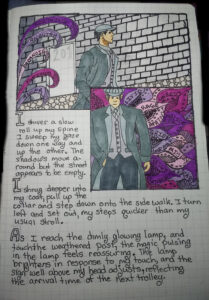 I shiver a slow
roll up my spine
I sweep my gaze
down one way and
up the other. The
shadows move a-
round but the street
appears to be empty.
I shrug deeper into
my coat, pull up the
collar and step down onto the sidewalk. I turn
left and set out, my steps quicker than my
usual stroll.
As I reach the dimly glowing lamp, and
touch the weathered post, the magic pulsing
in the lamp feels reassuring. The lamp
brightens in response to my touch, and the
sign well above my head adjusts, reflecting
the arrival time of the next trolley.